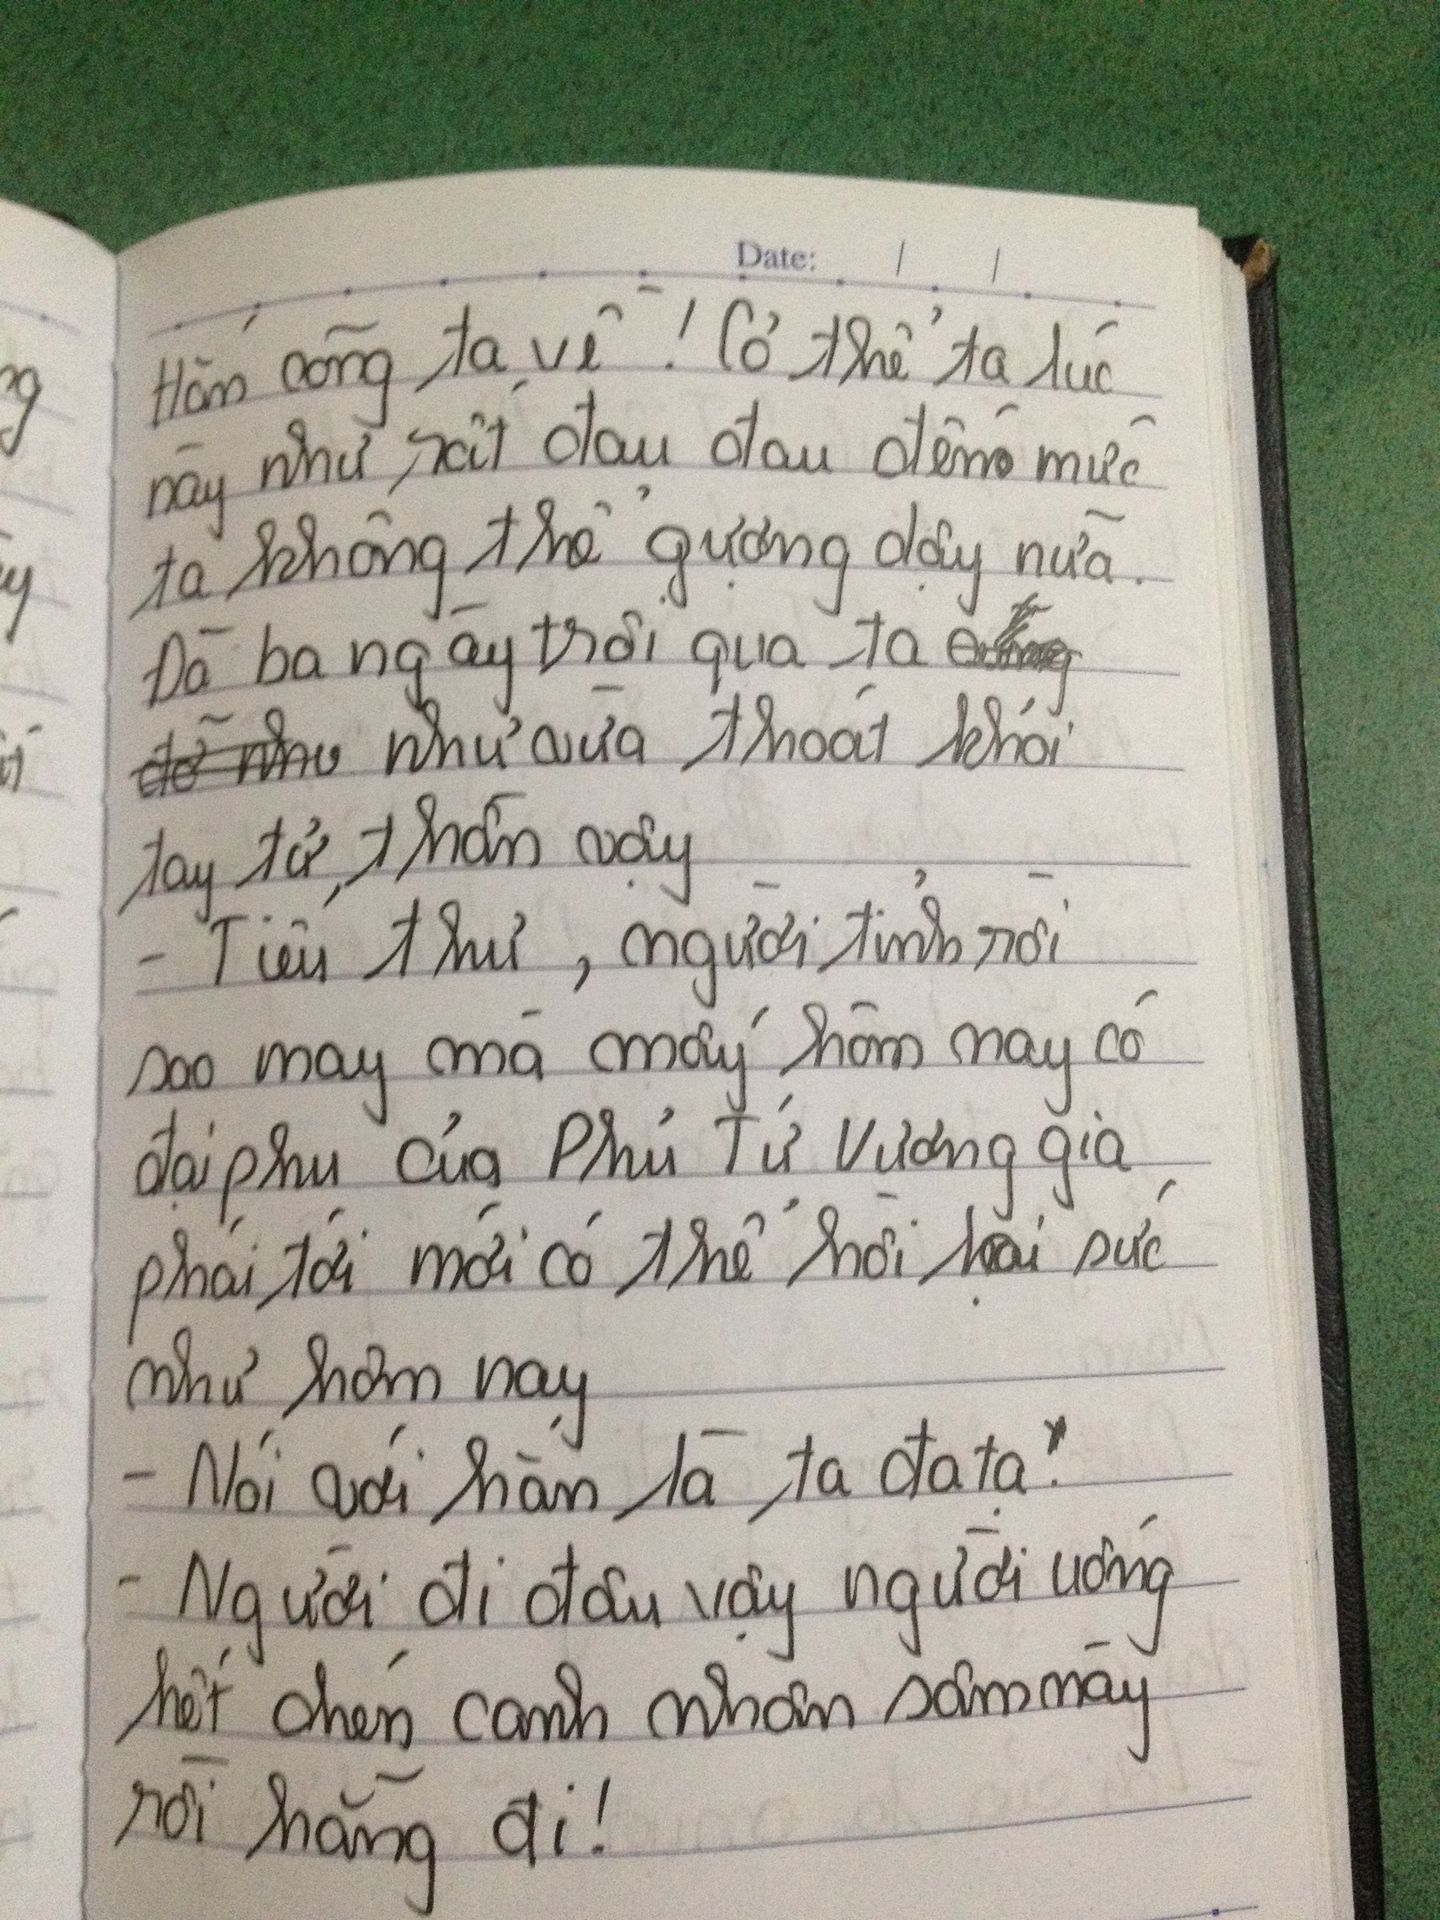 Date: / /
Hắn cõng ta về! Cơ thể ta lúc
này như rất đau đau đến mức
ta không thể gượng dậy nữa.
Đã ba ngày trôi qua ta
như vừa thoát khỏi
tay tử thần vậy
- Tiểu thư, người tỉnh rồi
sao may mà mấy hôm nay có
đại phu của Phủ Tứ Vương gia
phái tới mới có thể hồi lại sức
như hôm nay
- Nói với hắn là ta đa tạ!
- Người đi đâu vậy người uống
hết chén canh nhân sâm này
rồi hẵng đi!